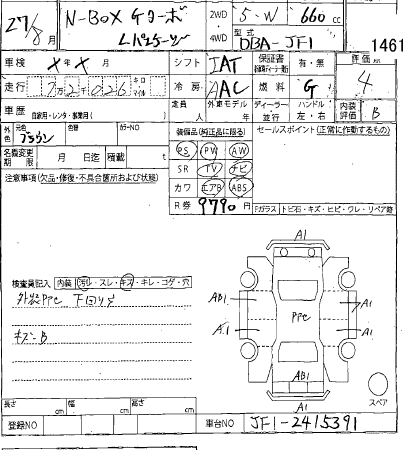 27/8月 N-BOX Gターボ 2WD 5-W 660 cc
Lパッケージ 4WD 型式 DBA-JF1
1461
車検 × 年 × 月 シフト IAT 保証書 有・無 評価点
走行 7万2千026 キロ マイル 冷房 AAC 燃料 G 4
車歴 自家用・レンタ・事業用( ) 定員 人 外車モデル 年 ディーラー 並行 ハンドル 左・右 内装評価 B
外色 ブラウン 色替 カラーNO 装備品(純正品に限る) セールスポイント(正常に作動するもの)
名義変更期限 月 日迄 積載 t PS PW AW
注意事項(欠品・修復・不具合箇所および状態) SR TV ナビ
カワ エアB ABS
R券 9790 円 Fガラス トビ石・キズ・ヒビ・ワレ・リペア跡
A1
検査員記入 内装 汚レ・スレ・キズ・キレ・コゲ・穴
AB1 A1
外装PPC 下回りサビ PPC
A1 A1
キズ-B
AB1
A1 スペア
長さ cm 幅 cm 高さ cm
登録NO 車台NO JF1-2415391